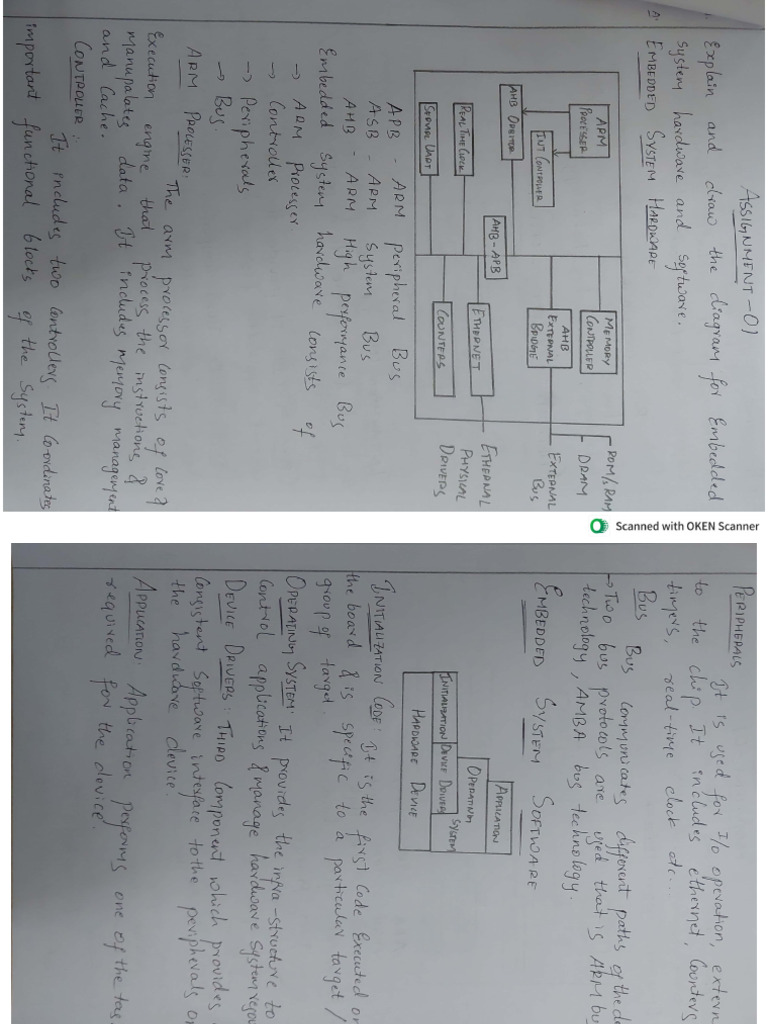 ASSIGNMENT-01
1. Explain and draw the diagram for Embedded
System hardware and software.
A. EMBEDDED SYSTEM HARDWARE
ARM
PROCESSER
INT CONTROLLER
AHB ORBITER
REAL TIME CLOCK
SERIAL UART
AHB-APB
MEMORY
CONTROLLER
AHB
EXTERNAL
BRIDGE
ETHERNET
COUNTERS
ROM/RAM
DRAM
EXTERNAL
BUS
ETHERNAL
PHYSICAL
DRIVERS
APB - ARM peripheral Bus
ASB - ARM System Bus
AHB - ARM High performance Bus
Embedded System hardware consists of
→ ARM processer
→ Controller
→ Peripherals
→ Bus.
ARM PROCESSER:
The arm processor consists of core &
Execution engine that process the instructions &
manupalates data. It includes memory management
and Cache.
CONTROLLER:
It includes two controllers It Co-ordinates
important functional blocks of the System.
Scanned with OKEN Scanner
PERIPHERALS
It is used for I/o operation, extern
to the chip It includes ethernet, Counters
timers, real-time clock etc...
Bus
Bus Communicates different paths of the d
→ Two bus protocols are used that is ARM bu
technology, AMBA bus technology.
EMBEDDED SYSTEM SOFTWARE
APPLICATION
OPERATING SYSTEM
INITIALISATION DEVICE DRIVER
HARDWARE DEVICE
INITIALIZATION CODE: It is the first Code Executed on
the board & is specific to a particular target /
group of target.
OPERATING SYSTEM: It provides the infra-structure to
Control applications & manage hardware System
DEVICE DRIVERS: THIRD Component which provides
Consistant Software interface to the peripherals on
the hardware device.
APPLICATION: Application performs one of the tas
required for the device.